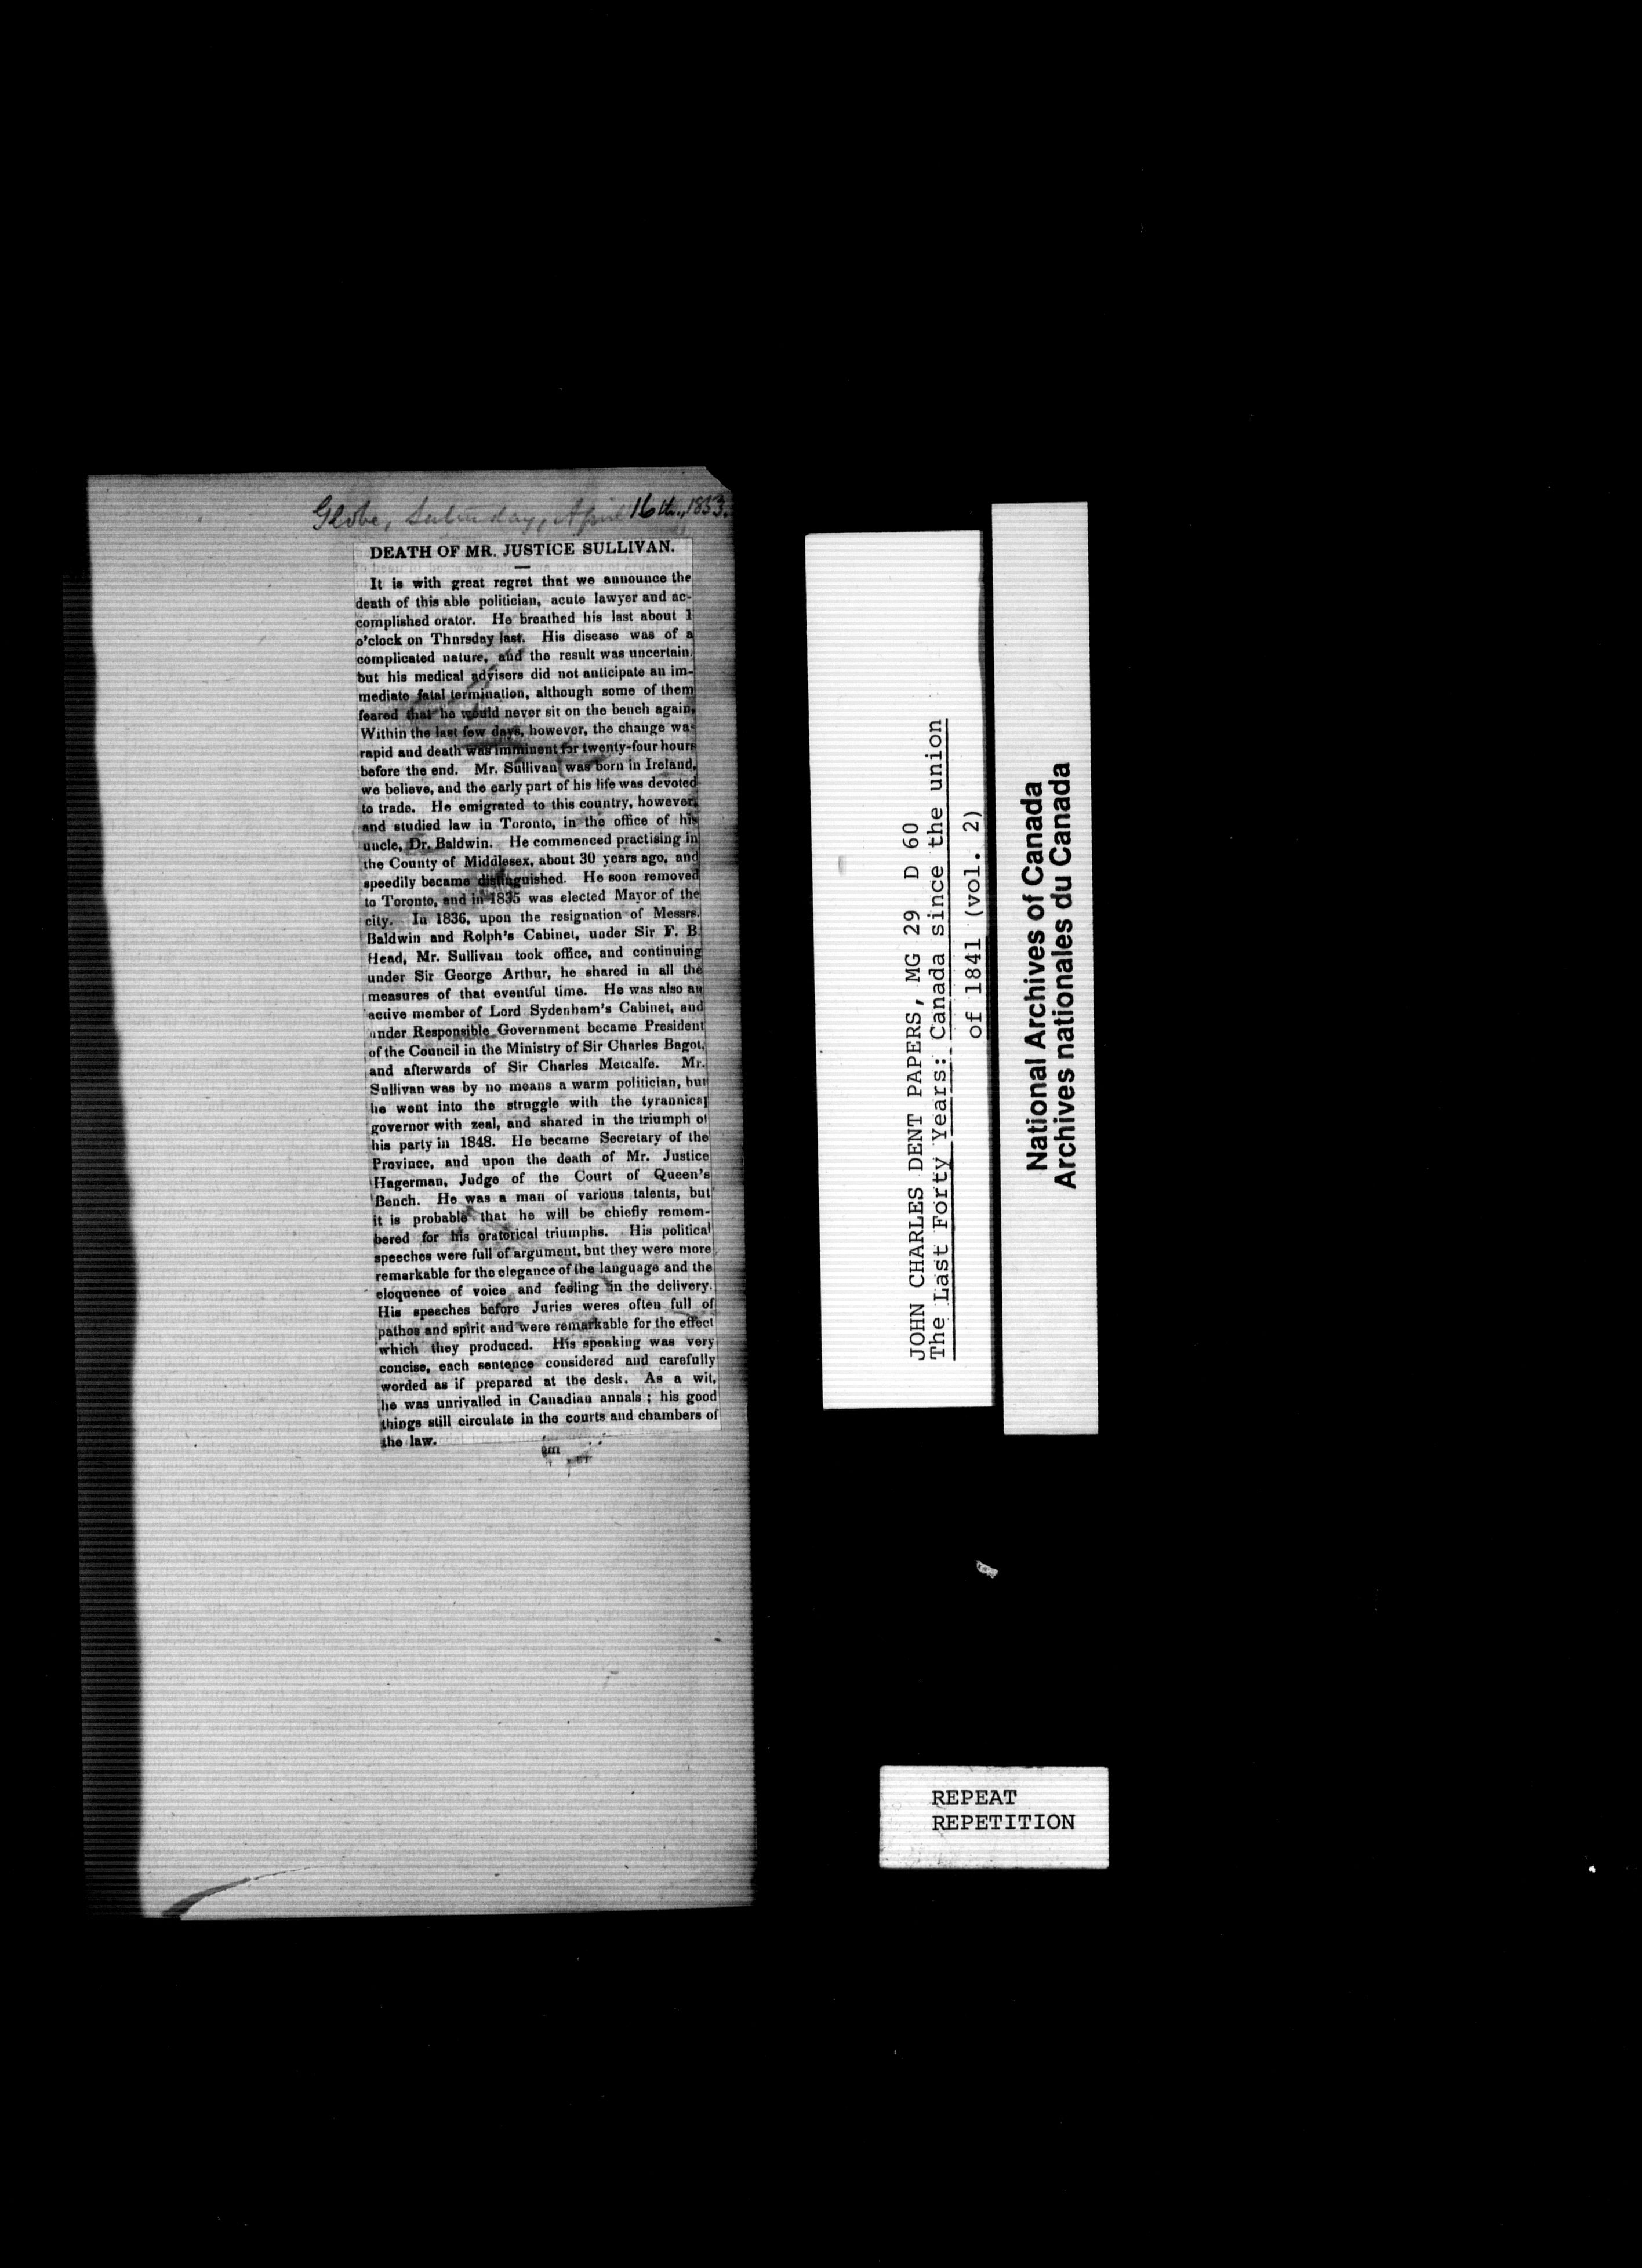 Globe, Saturday, April 16th., 1853.
DEATH OF MR. JUSTICE SULLIVAN.
It is with great regret that we announce the
death of this able politician, acute lawyer and ac-
complished orator. He breathed his last about 1
o'clock on Thursday last. His disease was of a
complicated nature, and the result was uncertain.
but his medical advisers did not anticipate an im-
mediate fatal termination, although some of them
feared that he would never sit on the bench again.
Within the last few days, however, the change was
rapid and death was imminent for twenty-four hours
before the end. Mr. Sullivan was born in Ireland,
we believe, and the early part of his life was devoted
to trade. He emigrated to this country, however,
and studied law in Toronto, in the office of his
uncle, Dr. Baldwin. He commenced practising in
the County of Middlesex, about 30 years ago, and
speedily became distinguished. He soon removed
to Toronto, and in 1835 was elected Mayor of the
city. In 1836, upon the resignation of Messrs.
Baldwin and Rolph's Cabinet, under Sir F. B.
Head, Mr. Sullivan took office, and continuing
under Sir George Arthur, he shared in all the
measures of that eventful time. He was also an
active member of Lord Sydenham's Cabinet, and
under Responsible Government became President
of the Council in the Ministry of Sir Charles Bagot,
and afterwards of Sir Charles Metcalfe. Mr.
Sullivan was by no means a warm politician, but
he went into the struggle with the tyrannical
governor with zeal, and shared in the triumph of
his party in 1848. He became Secretary of the
Province, and upon the death of Mr. Justice
Hagerman, Judge of the Court of Queen's
Bench. He was a man of various talents, but
it is probable that he will be chiefly remem-
bered for his oratorical triumphs. His political
speeches were full of argument, but they were more
remarkable for the elegance of the language and the
eloquence of voice and feeling in the delivery.
His speeches before Juries weres often full of
pathos and spirit and were remarkable for the effect
which they produced. His speaking was very
concise, each sentence considered and carefully
worded as if prepared at the desk. As a wit,
he was unrivalled in Canadian annals ; his good
things still circulate in the courts and chambers of
the law.
JOHN CHARLES DENT PAPERS, MG 29 D 60
The Last Forty Years: Canada since the union
of 1841 (vol. 2)
National Archives of Canada
Archives nationales du Canada
REPEAT
REPETITION